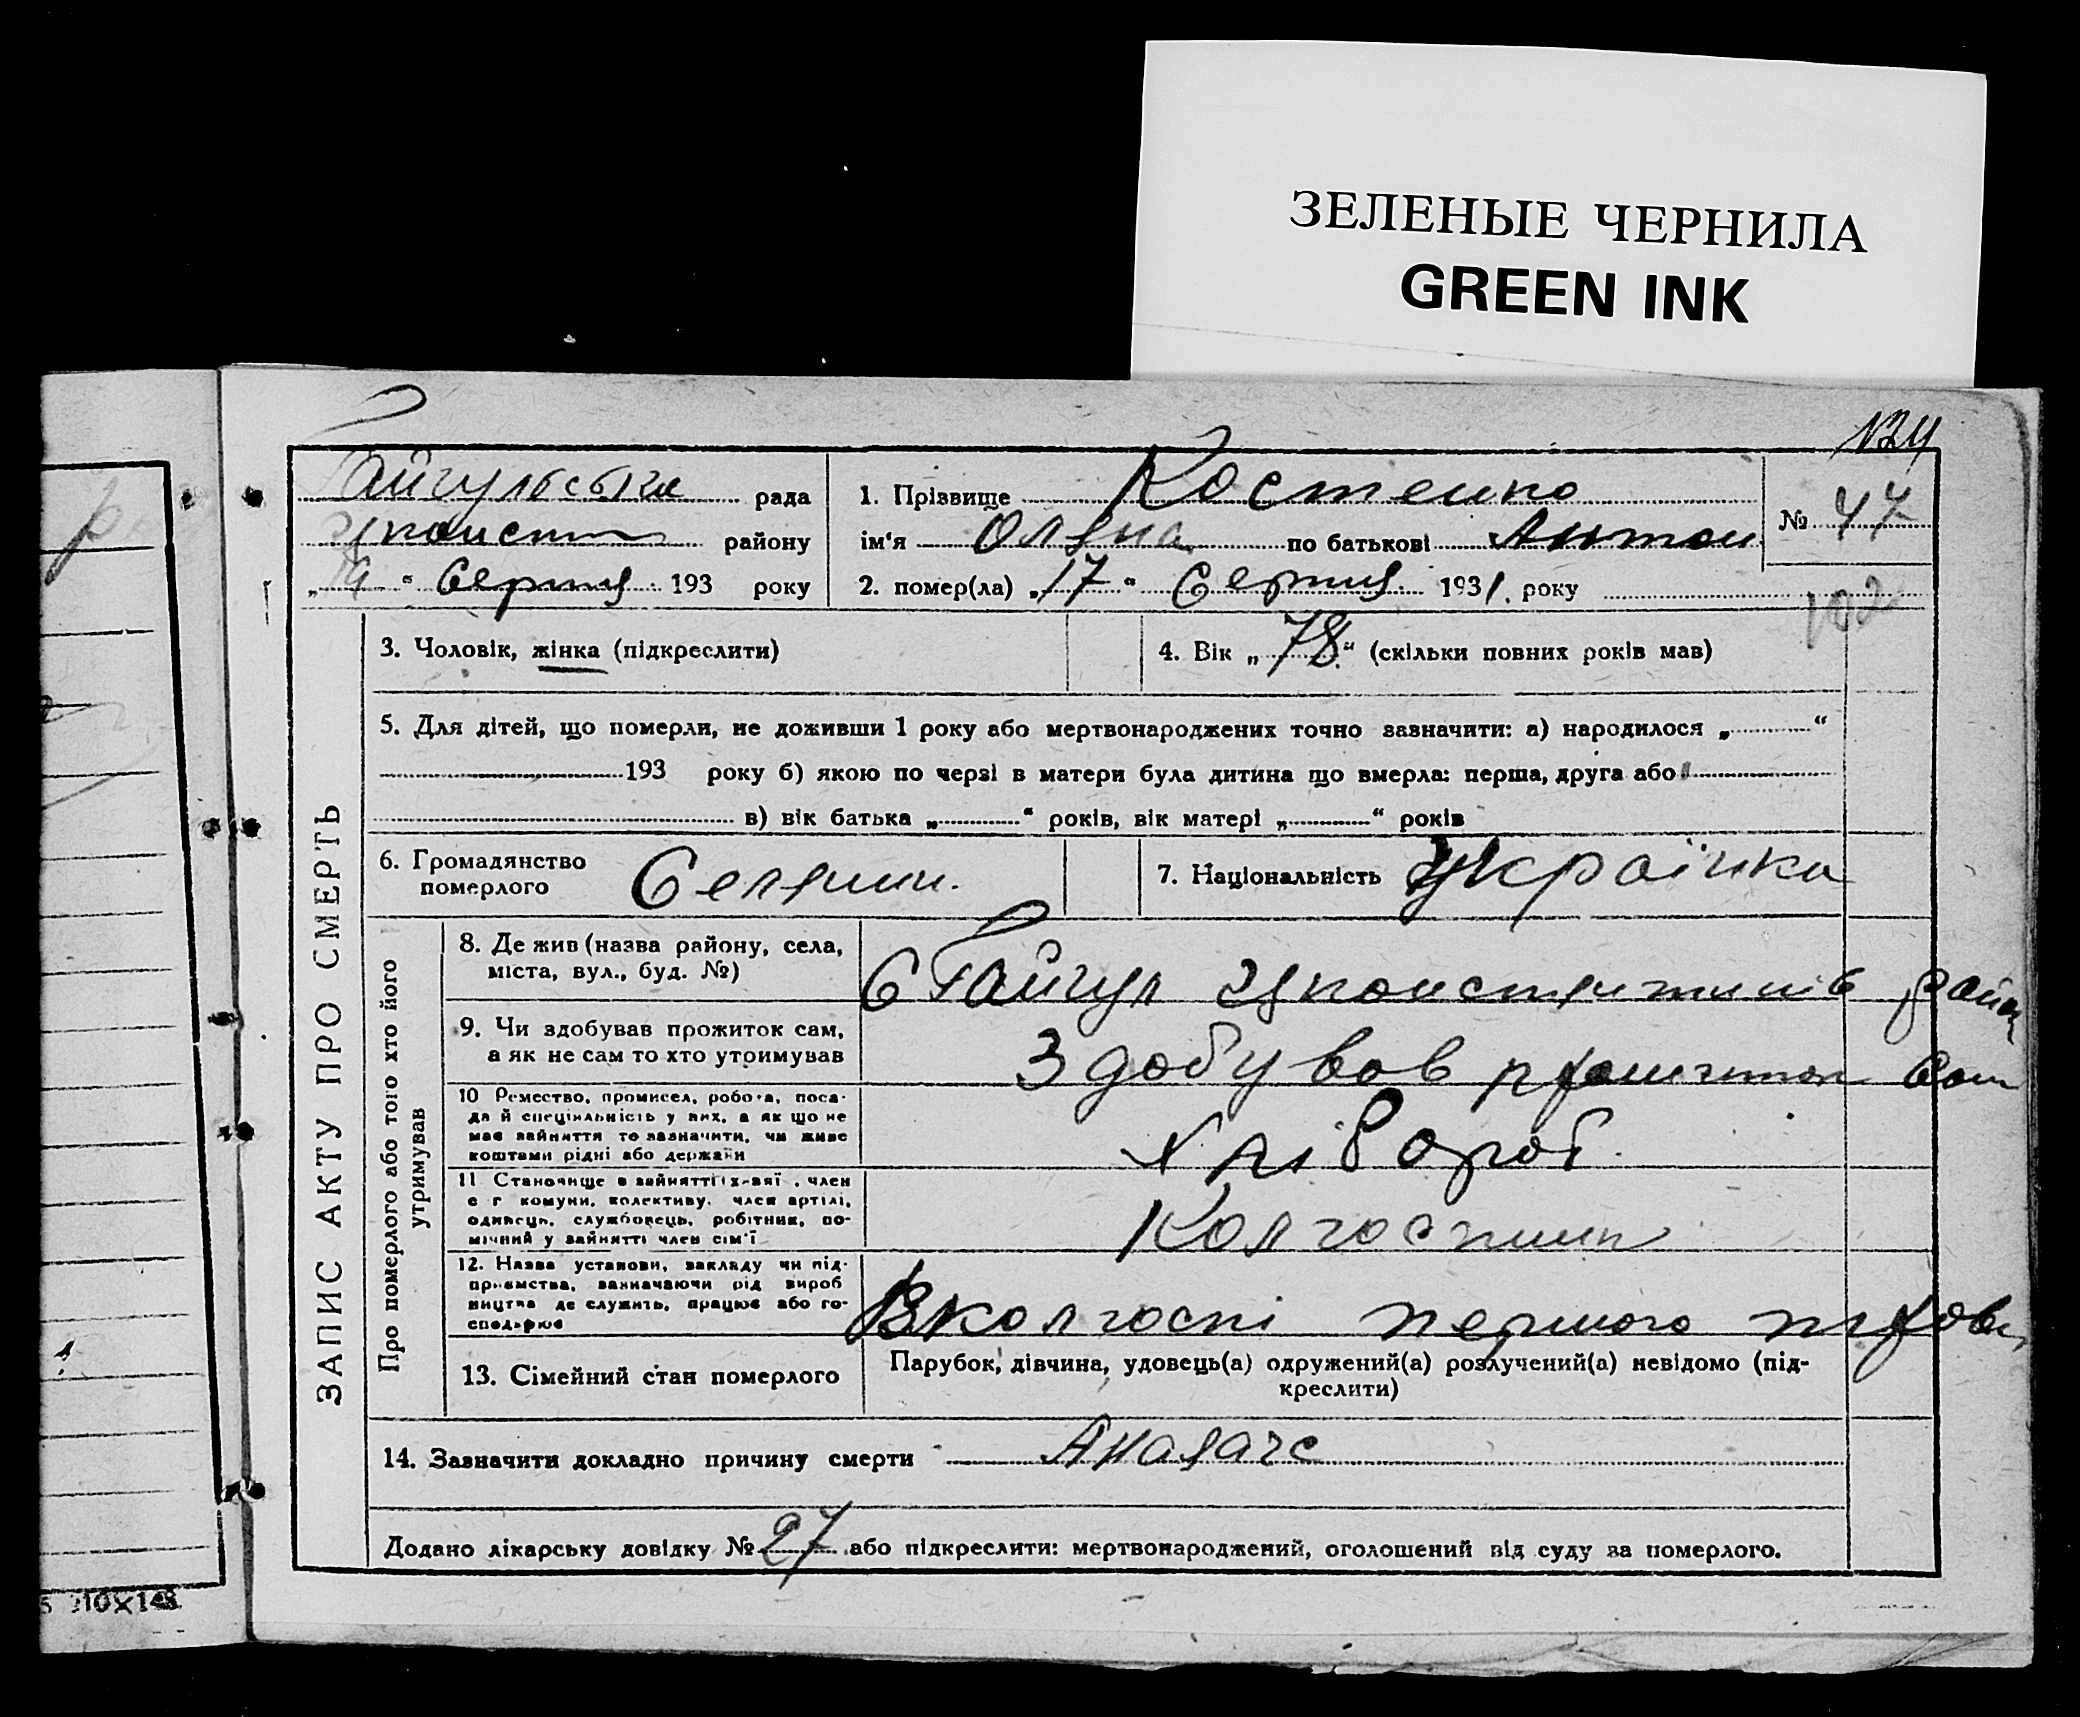 ЗЕЛЕНЫЕ ЧЕРНИЛА
GREEN INK
Гайчульська рада
району
„19“ Серпня 193 року
1. Прізвище Костенко
ім‘я Олена по батькові Антон
2. помер(ла) „17“ Серпня 1931. року
№ 47
102
ЗАПИС АКТУ ПРО СМЕРТЬ
3. Чоловік, жінка (підкреслити)
4. Вік „78“ (скільки повних років мав)
5. Для дітей, що померли, не доживши 1 року або мертвонароджених точно зазначити: а) народилося „ “
193 року б) якою по черзі в матери була дитина що вмерла: перша, друга або
в) вік батька „ “ років, вік матері „ “ років
6. Громадянство
померлого
Селянин.
7. Національність Українка
Про померлого або того хто його
утримував
8. Де жив (назва району, села,
міста, вул., буд. №)
С Гайчул район
9. Чи здобував прожиток сам,
а як не сам то хто утримував
Здобував сам
10 Ремество, промисел, робота, поса-
да й спеціяльність у них, а як що не
має зайняття то зазначити, чи живе
коштами рідні або держави
Хлібороб.
11 Становище в зайнятті член
с г комуни, колективу, член артілі,
одинець, службовець, робітник, по-
мічний у зайнятті член сім‘ї
Колгоспник
12. Назва установи, закладу чи під-
приємства, зазначаючи рід вироб
ництва де служить, працює або го-
сподарює
В колгоспі першого
13. Сімейний стан померлого
Парубок, дівчина, удовець(а) одружений(а) розлучений(а) невідомо (під-
креслити)
14. Зазначити докладно причину смерти
Додано лікарську довідку № 27 або підкреслити: мертвонароджений, оголошений від суду за померлого.
210×148